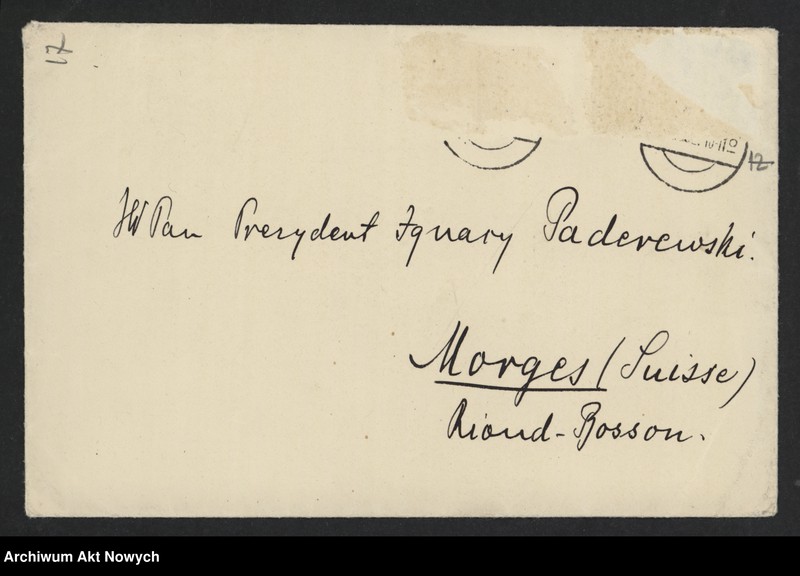 17
12
JW Pan Prezydent Ignacy Paderewski.
Morges (Suisse)
Riond-Bosson.
Archiwum Akt Nowych